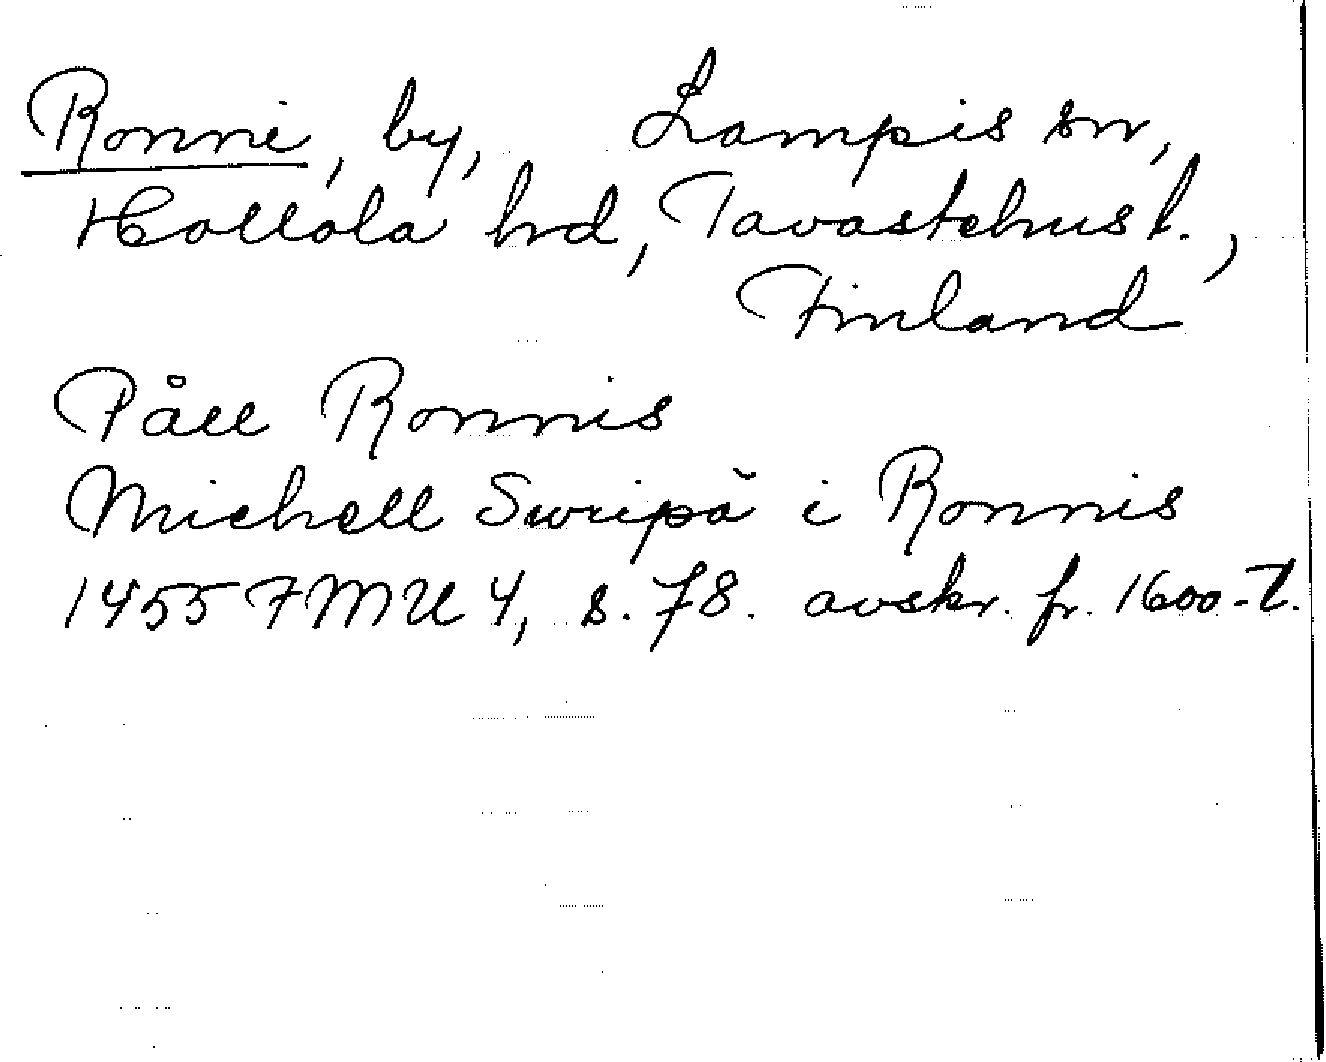 Ronni, by, Lampis sn,
Hollola hd, Tavastehus l.,
Finland
Påll Ronnis
Michell Swripä i Ronnis
1455 FMU 4, s. 78. avskr. fr. 1600-t.